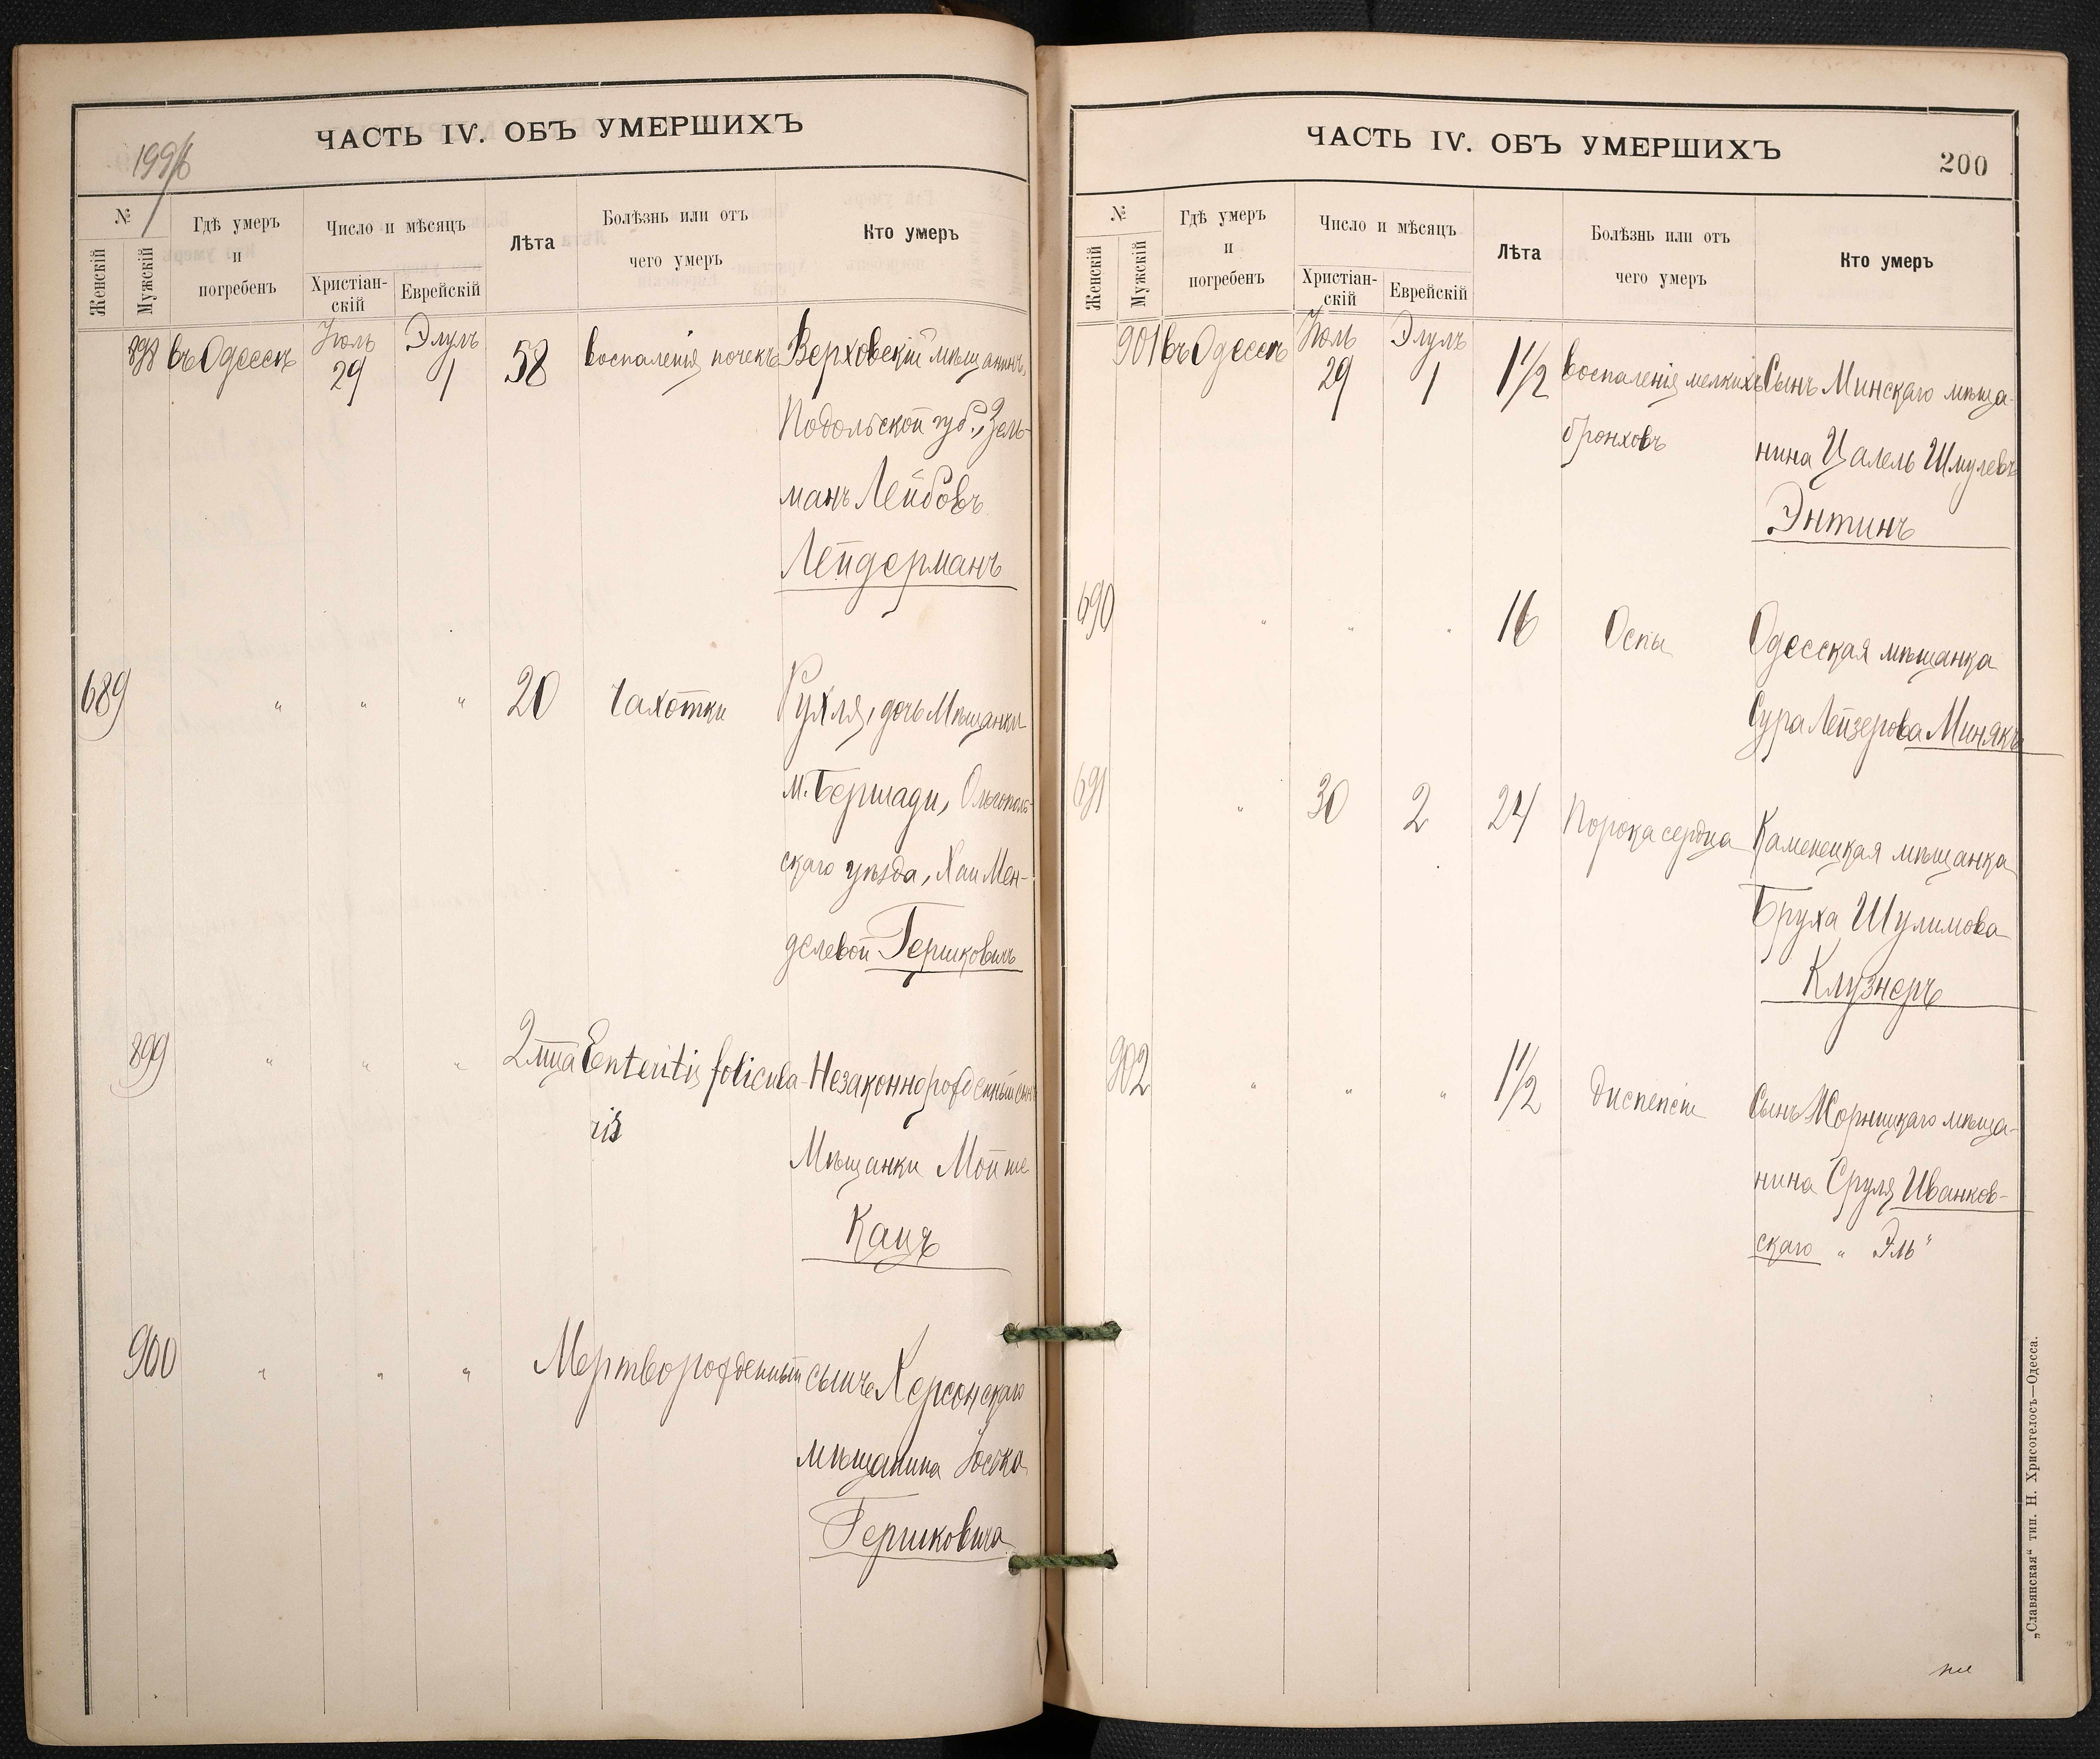 ЧАСТЬ IV. ОБЪ УМЕРШИХЪ
№
Женскій
Мужскій
Гдѣ умеръ
и
погребенъ
Число и мѣсяцъ
Христіан-
скій
Еврейскій
Лѣта
Болѣзнь или отъ
чего умеръ
Кто умеръ
898 въ Одессѣ Іюль 29 Элулъ 1 58 воспаленія почекъ Верховскій мѣщанинъ,
Подольской губ., Зель-
манъ Лейбовъ
Лейдерманъ
689 " " " 20 Чахотки Рухля, дочь Мѣщанки
м. Бершади, Ольгополь-
скаго уѣзда, Хаи Мен-
делевой Гершковичъ
899 " " " 2 мца Enteritis folicula- Незаконнорожденный сынъ
ris
Мѣщанки Мойше
Кацъ
900 " " " Мертворожденный сынъ Херсонскаго
мѣщанина Іоська
Гершковича
ЧАСТЬ IV. ОБЪ УМЕРШИХЪ
200
№
Женскій
Мужскій
Гдѣ умеръ
и
погребенъ
Число и мѣсяцъ
Христіан-
скій
Еврейскій
Лѣта
Болѣзнь или отъ
чего умеръ
Кто умеръ
901 въ Одессѣ Іюль 29 Элулъ 1 1 1/2 воспаленія мелкихъ Сынъ Минскаго мѣща-
бронховъ нина Цалель Шмулевъ
Энтинъ
690 " " " 16 Оспы Одесская мѣщанка
Сура Лейзерова Минякъ
691 " 30 2 24 Порока сердца Каменецкая мѣщанка
Бруха Шулимова
Клузнеръ
902 " " " 1 1/2 Диспепсіи Сынъ Жорнищкаго мѣща-
нина Сруля Иванков-
скаго „Эль"
„Славянская" тип. Н. Хрисогелосъ—Одесса.